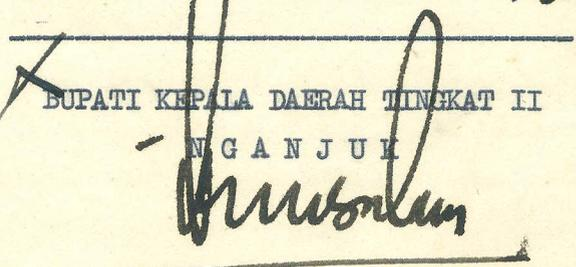 BUPATI KEPALA DAERAH TINGKAT II
N G A N J U K